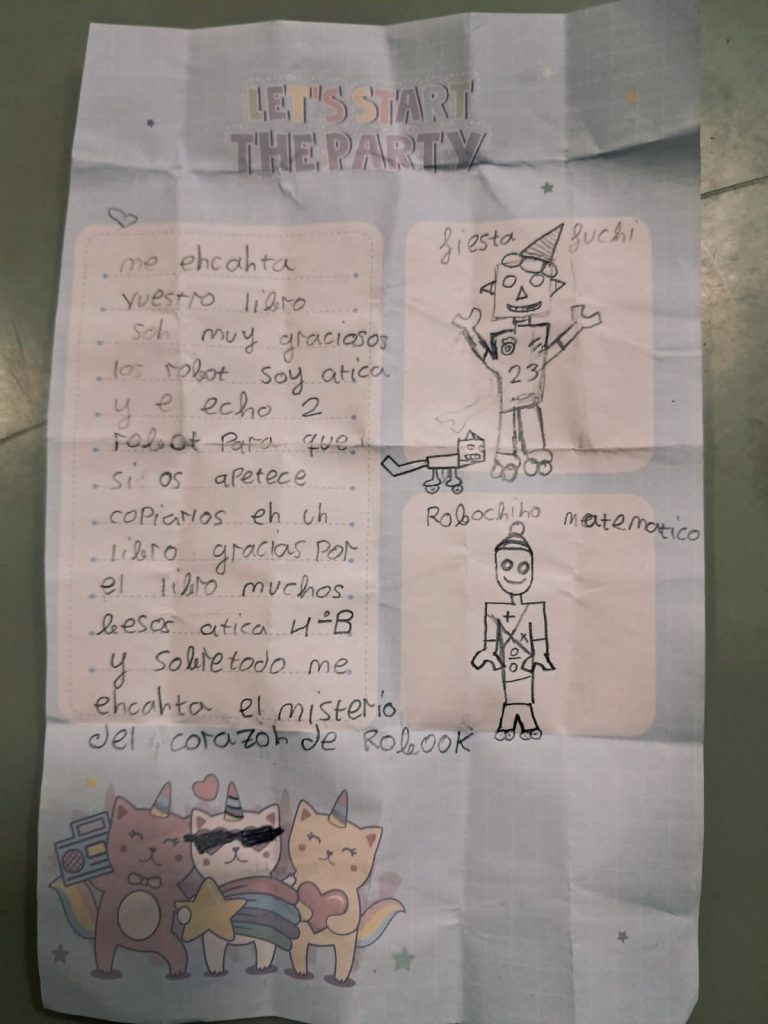 LET'S START
THE PARTY
me encanta
vuestro libro
son muy graciosos
los robot soy atica
y e echo 2
robot para que
si os apetece
copiarlos en un
libro gracias por
el libro muchos
besos atica 4ºB
y sobretodo me
encanta el misterio
del corazon de Robook
fiesta fuchi
23
Robochino matematico
+
x
÷